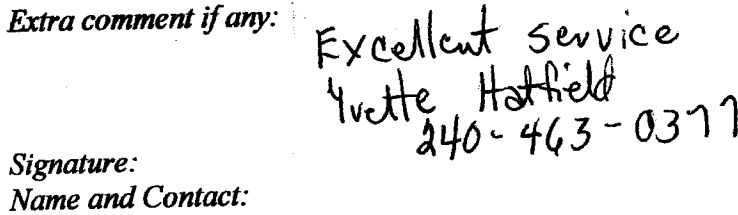 Extra comment if any:
Excellent service
Yvette Hatfield
240-463-0377
Signature:
Name and Contact: